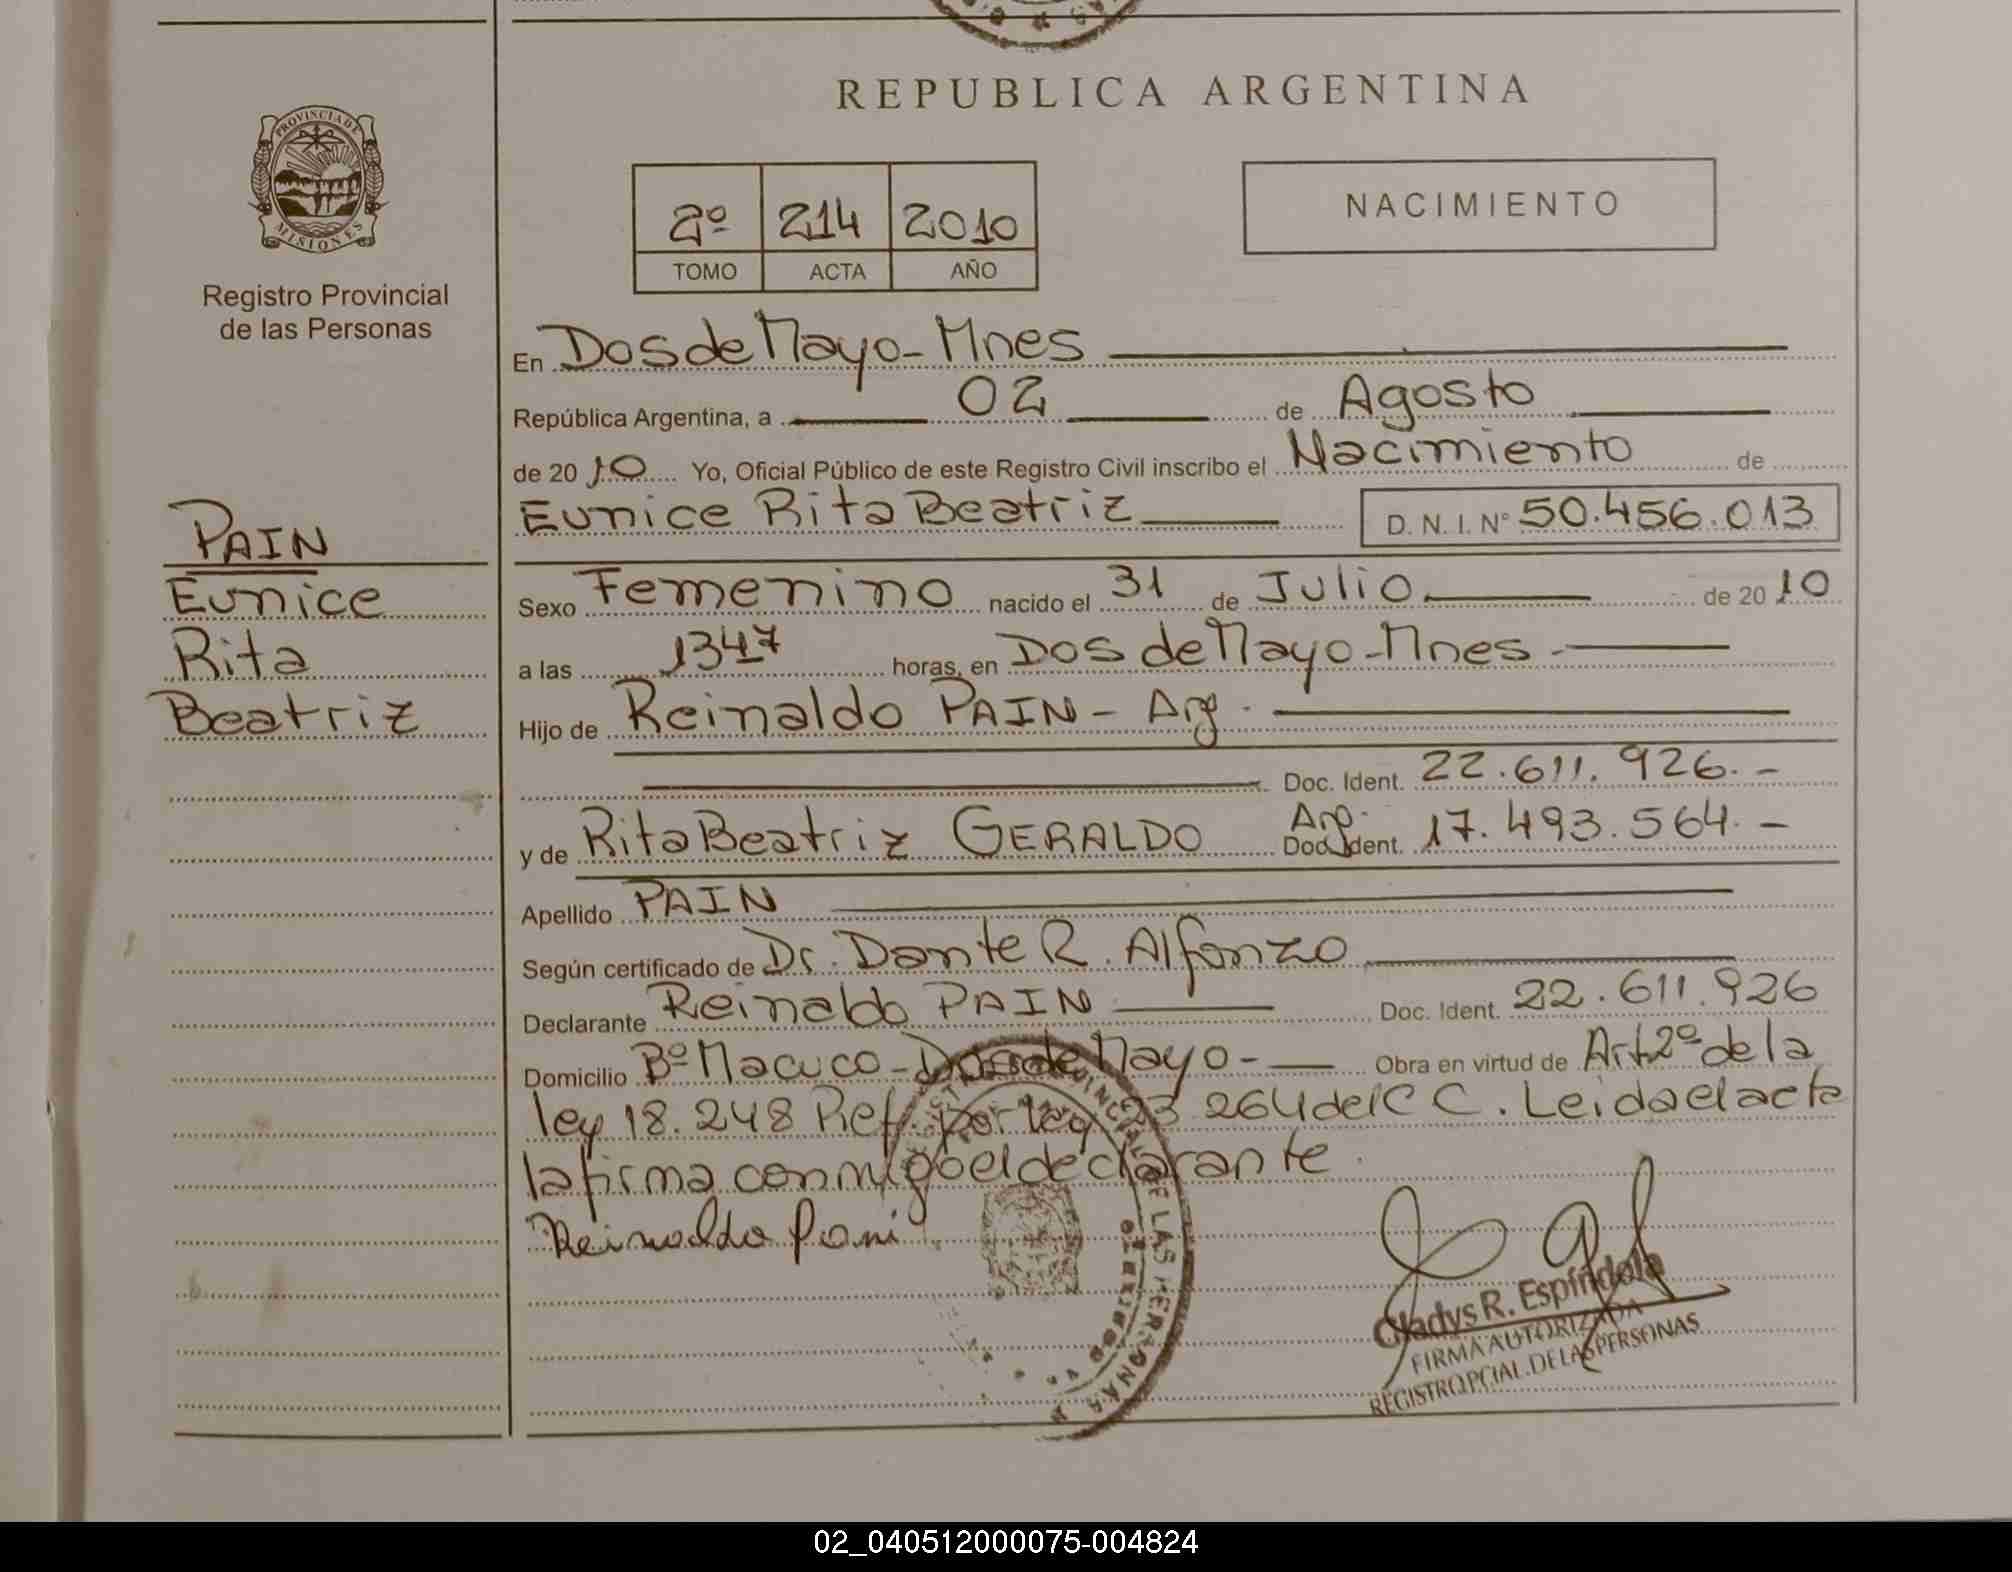 REPUBLICA ARGENTINA
PROVINCIA DE
MISIONES
Registro Provincial
de las Personas
2º 214 2010
TOMO ACTA AÑO
NACIMIENTO
En Dos de Mayo - Mnes
República Argentina, a 02 de Agosto
de 2010 Yo, Oficial Público de este Registro Civil inscribo el Nacimiento de
Eunice Rita Beatriz D. N. I. Nº 50.456.013
PAIN
Eunice
Rita
Beatriz
Sexo Femenino nacido el 31 de Julio de 2010
a las 1347 horas, en Dos de Mayo - Mnes
Hijo de Reinaldo PAIN - Arg.
Doc. Ident. 22.611.926.-
y de Rita Beatriz GERALDO Arg. Doc. Ident. 17.493.564.-
Apellido PAIN
Según certificado de Dr. Dante R. Alfonzo
Declarante Reinaldo PAIN Doc. Ident. 22.611.926
Domicilio Bº Macuco - Dos de Mayo - Obra en virtud de Art 2º de la
ley 18.248 Ref. por ley 23 264 del C C. Leida el acta
la firma conmigo el declarante.
Reinaldo Pain
Gladys R. Espíndola
FIRMA AUTORIZADA
REGISTRO PCIAL. DE LAS PERSONAS
02_040512000075-004824